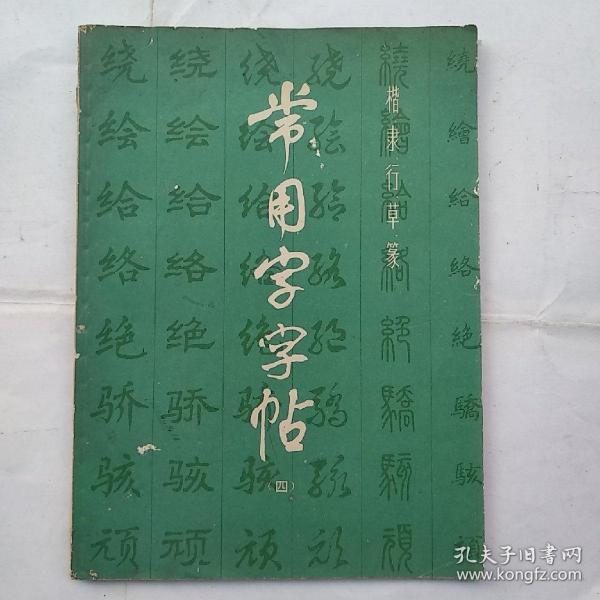 常用字字帖
（四）
楷隶行草篆
绕 绕 绕 绕 繞 繞
绘 绘 绘 绘 繪 繪
给 给 给 给 給 給
络 络 络 络 絡 絡
绝 绝 绝 绝 絕 絕
骄 骄 骄 骄 驕 驕
骇 骇 骇 骇 駭 駭
顽 顽 顽 顽 頑
孔夫子旧书网
www.kongfz.com